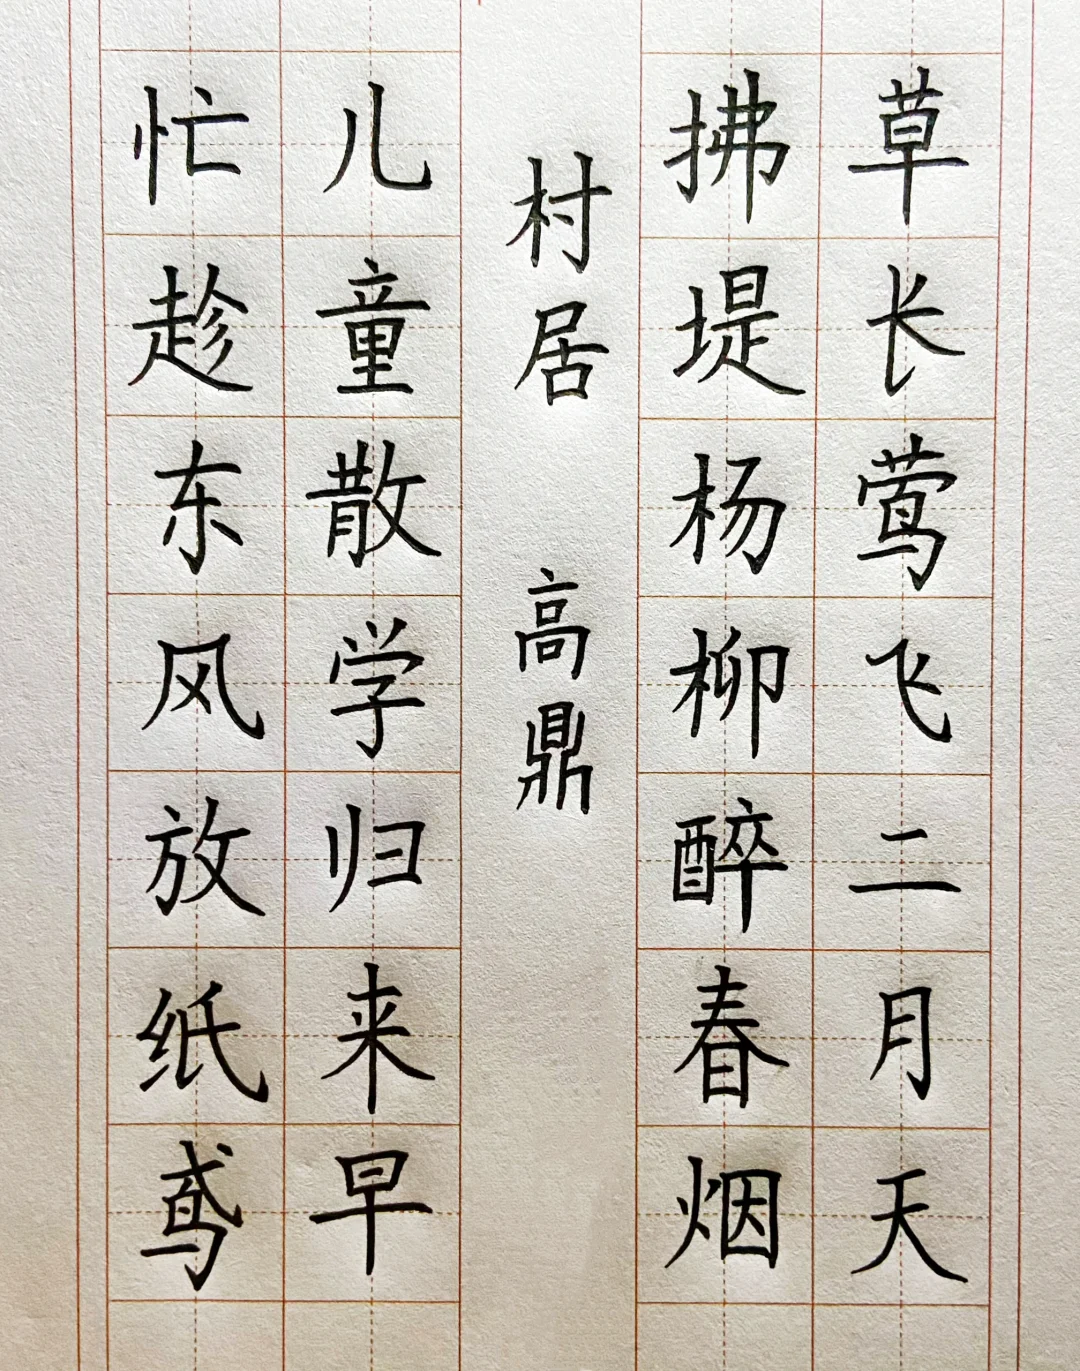 草长莺飞二月天
拂堤杨柳醉春烟
村居 高鼎
儿童散学归来早
忙趁东风放纸鸢